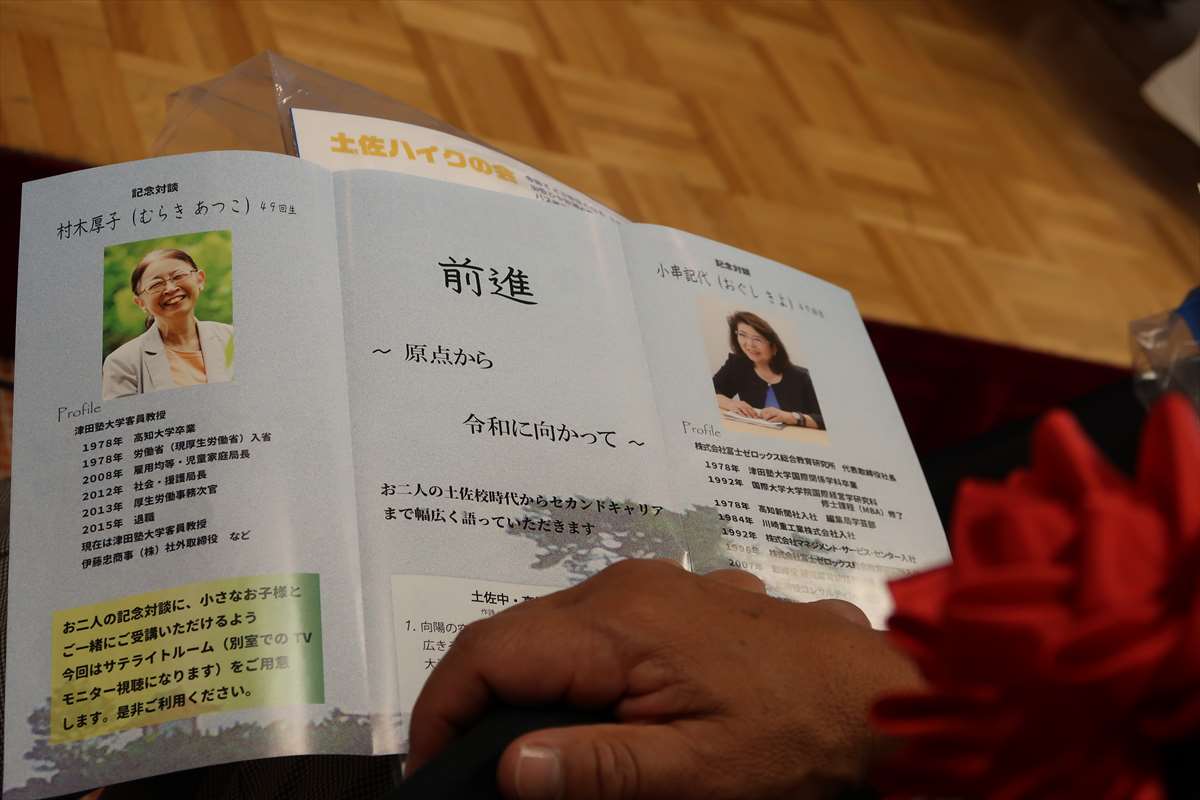 土佐ハイクの会
記念対談
村木厚子（むらき あつこ）49回生
Profile
津田塾大学客員教授
1978年 高知大学卒業
1978年 労働省（現厚生労働省）入省
2008年 雇用均等・児童家庭局長
2012年 社会・援護局長
2013年 厚生労働事務次官
2015年 退職
現在は津田塾大学客員教授
伊藤忠商事（株）社外取締役 など
お二人の記念対談に、小さなお子様と
ご一緒にご受講いただけるよう
今回はサテライトルーム（別室での TV
モニター視聴になります）をご用意
します。是非ご利用ください。
前進
～ 原点から
令和に向かって ～
お二人の土佐校時代からセカンドキャリア
まで幅広く語っていただきます
土佐中・
1. 向陽の
広き
記念対談
小串記代（おぐし きよ）49回生
Profile
株式会社富士ゼロックス総合教育研究所 代表取締役社長
1978年 津田塾大学国際関係学科卒業
1992年 国際大学大学院国際経営学研究科
修士課程（MBA）修了
1978年 高知新聞社入社 編集局学芸部
1984年 川崎重工業株式会社入社
1992年 株式会社マネジメント・サービス・センター入社
1996年 株式会社富士ゼロックス
2007年